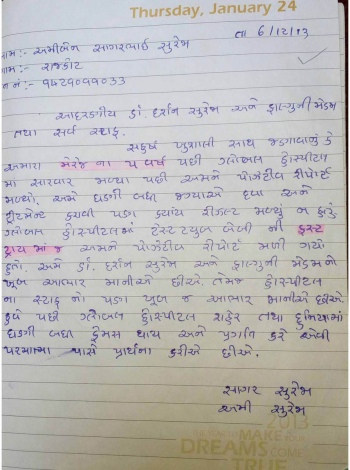 Thursday, January 24
તા 6/12/13
નામ:- અમીબેન સાગરભાઈ સુરેજા
ગામ:- રાજકોટ
આદરણીય ડૉ. દર્શન સુરેજા અને ફાલ્ગુની મેડમ
તથા સર્વ સ્ટાફ.
સહર્ષ ખુશાલી સાથ જણાવવાનું કે
અમારા મેરેજ ના ૫ વર્ષ પછી ગ્લોબલ હોસ્પીટલ
મા સારવાર મળ્યા પછી અમને પોઝીટીવ રીપોર્ટ
મળ્યો. અમે ઘણી બધી જગ્યાએ દવા અને
ટ્રીટમેન્ટ કરાવી પણ ક્યાંય રીઝલ્ટ મળ્યું ન હતું.
ગ્લોબલ હોસ્પિટલમાં ટેસ્ટ ટ્યુબ બેબી ની ફસ્ટ
ટ્રાય માં જ અમને પોઝીટીવ રીપોર્ટ મળી ગયો
હતો. અમે ડૉ. દર્શન સુરેજા અને ફાલ્ગુની મેડમ નો
ખુબ આભાર માનીએ છીએ. તેમજ હોસ્પીટલ
ના સ્ટાફ નો પણ ખુબ જ આભાર માનીએ છીએ.
હવે પછી ગ્લોબલ હોસ્પીટલ શહેર તથા દુનિયામાં
ઘણી બધી ફેમસ થાય અને પ્રગતિ કરે એવી
પરમાત્મા પાસે પ્રાર્થના કરીએ છીએ.
સાગર સુરેજા
અમી સુરેજા
2013
MAKE
DREAMS COME
TRUE